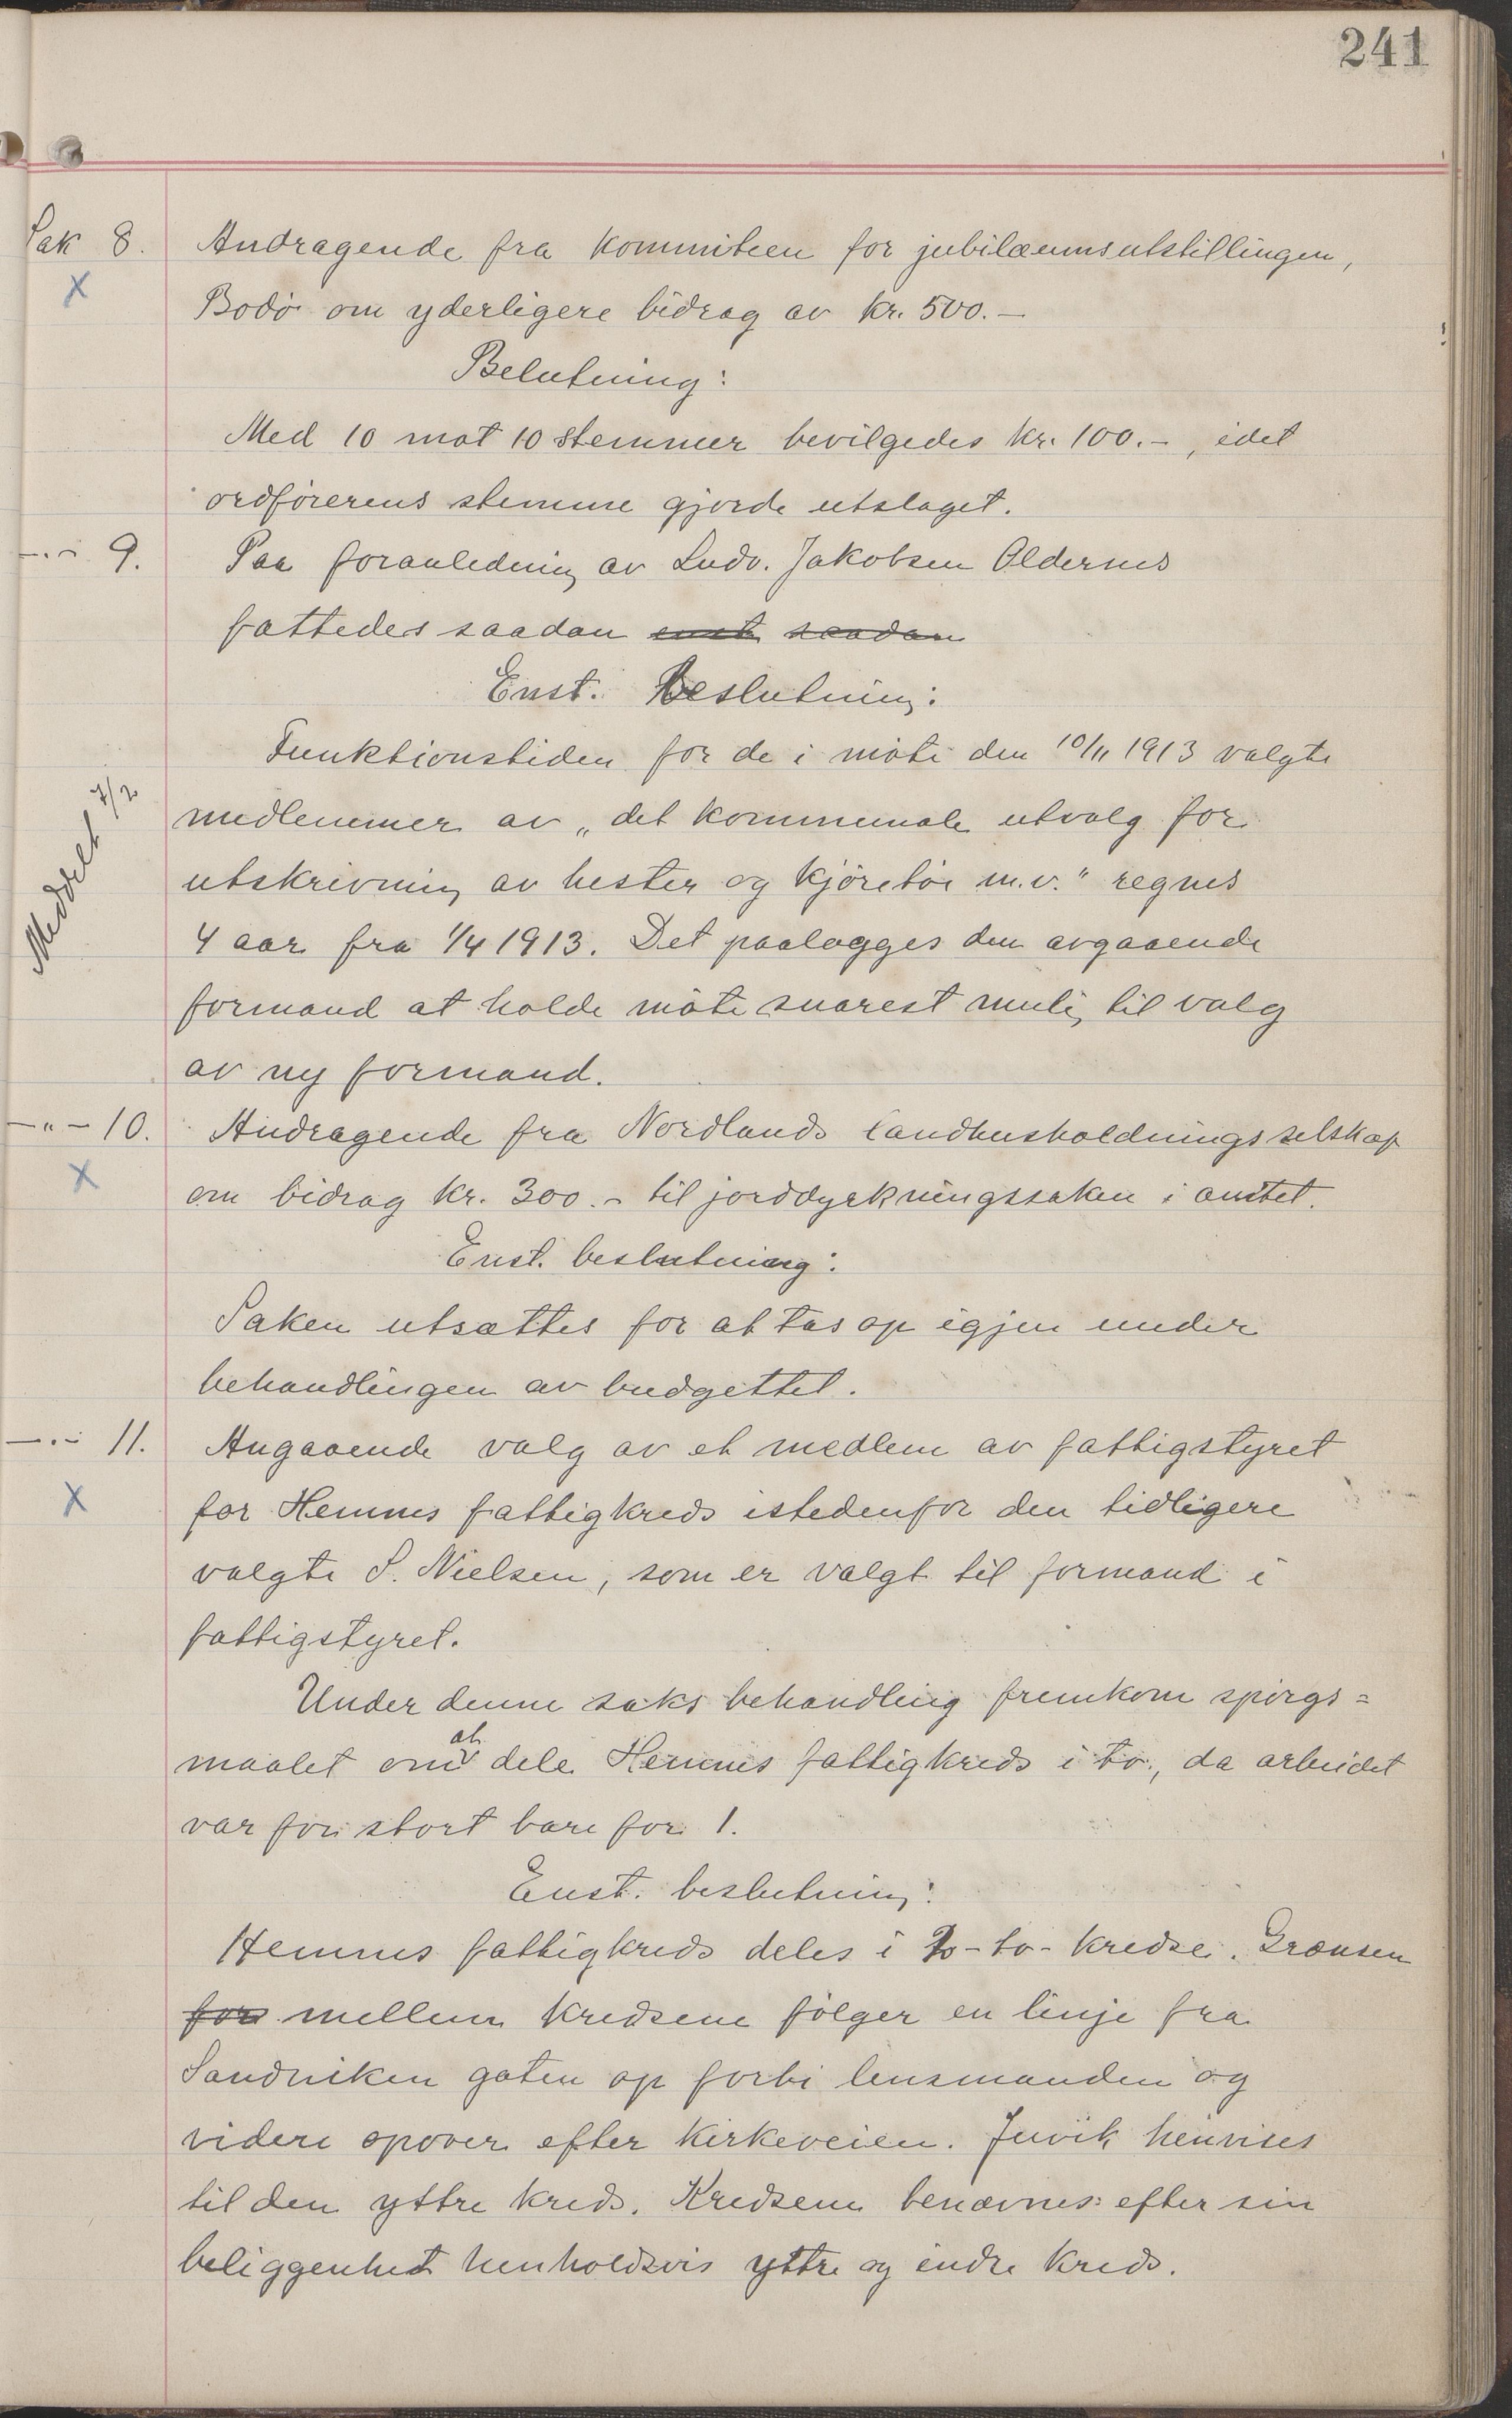 241
Sak 8. Andragende fra kommiteen for jubilæumsutstillingen,
X
Bodö om yderligere bidrag av kr. 500.—
Belutning:
Med 10 mot 10 stemmer bevilgedes kr. 100.—, idet
ordförerens stemme gjorde utslaget.
—"— 9. Paa foranledning av Ludv. Jakobsen Oldernes
fattedes saadan enst. saadan
Enst. Beslutning:
Funktionstiden for de i möte den 10/11 1913 valgte
Meddelt 7/2
medlemmer av „det kommunale utvalg for
utskrivning av hester og kjöretöi m.v." regnes
4 aar fra 1/4 1913. Det paalægges den avgaaende
formand at holde möte snarest mulig til valg
av ny formand.
—"— 10. Andragende fra Nordlands landhusholdningsselskap
X
om bidrag kr. 300.— til jorddyrkningssaken i amtet.
Enst. beslutning:
Saken utsættes for at tas op igjen under
behandlingen av budgettet.
—"— 11. Angaaende valg av et medlem av fattigstyret
X
for Hemnes fattigkreds istedenfor den tidligere
valgte S. Nielsen, som er valgt til formand i
fattigstyret.
Under denne saks behandling fremkom spörgs=
maalet om at dele Hemnes fattigkreds i to, da arbeidet
var for stort bare for 1.
Enst. beslutning:
Hemnes fattigkreds deles i 2-to- kredse. Grænsen
for mellem kredsene fölger en linje fra
Sandviken gaten op forbi lensmanden og
videre opover efter kirkeveien. Juvik henvises
til den yttre kreds. Kredsene benævnes efter sin
beliggenhet henholdsvis yttre og indre kreds.